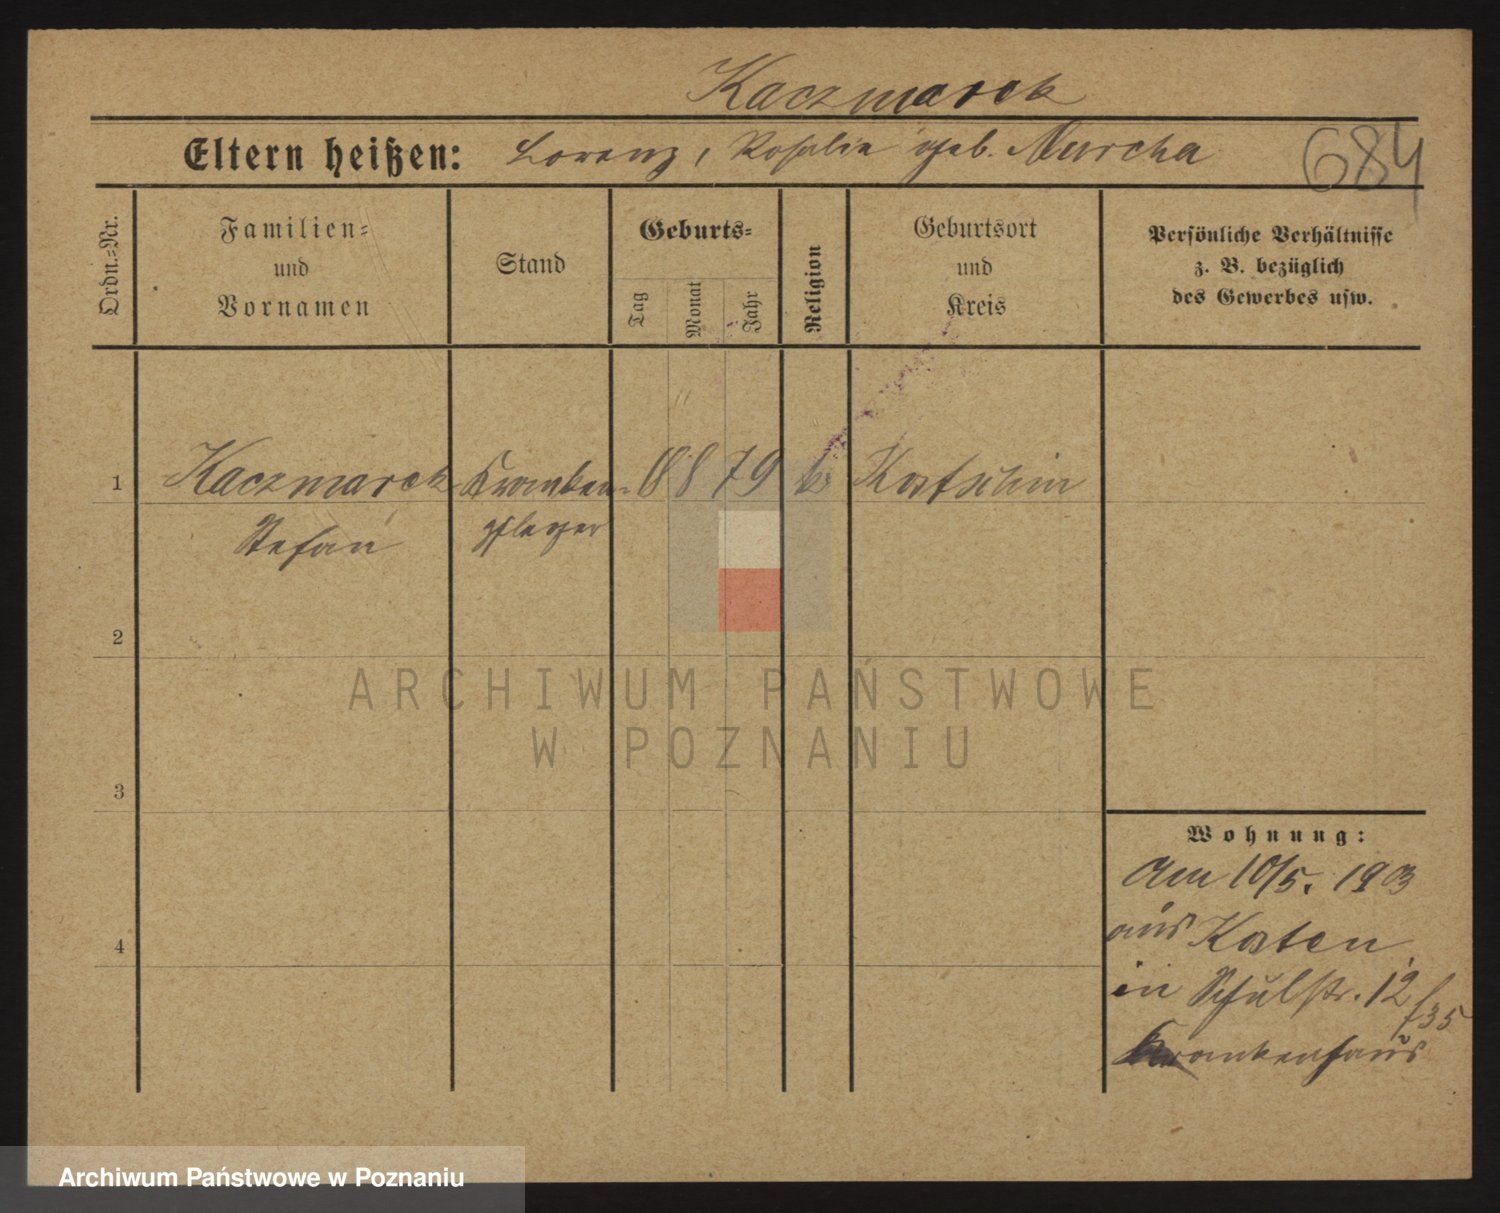 Kaczmarek
Eltern heißen: Lorenz, Rosalie geb. Murcha
684
Ordn.-Nr.
Familien-
und
Vornamen
Stand
Geburts-
Tag
Monat
Jahr
Religion
Geburtsort
und
Kreis
Persönliche Verhältnisse
z. B. bezüglich
des Gewerbes usw.
1 Kaczmarek Kranken- 18 8 79 k. Kostschin
Stefan pfleger
2
3
4
Wohnung:
Am 10/5. 1903
aus Kosten
in Schulstr. 12
f35
Krankenhaus
ARCHIWUM PAŃSTWOWE
W POZNANIU
Archiwum Państwowe w Poznaniu